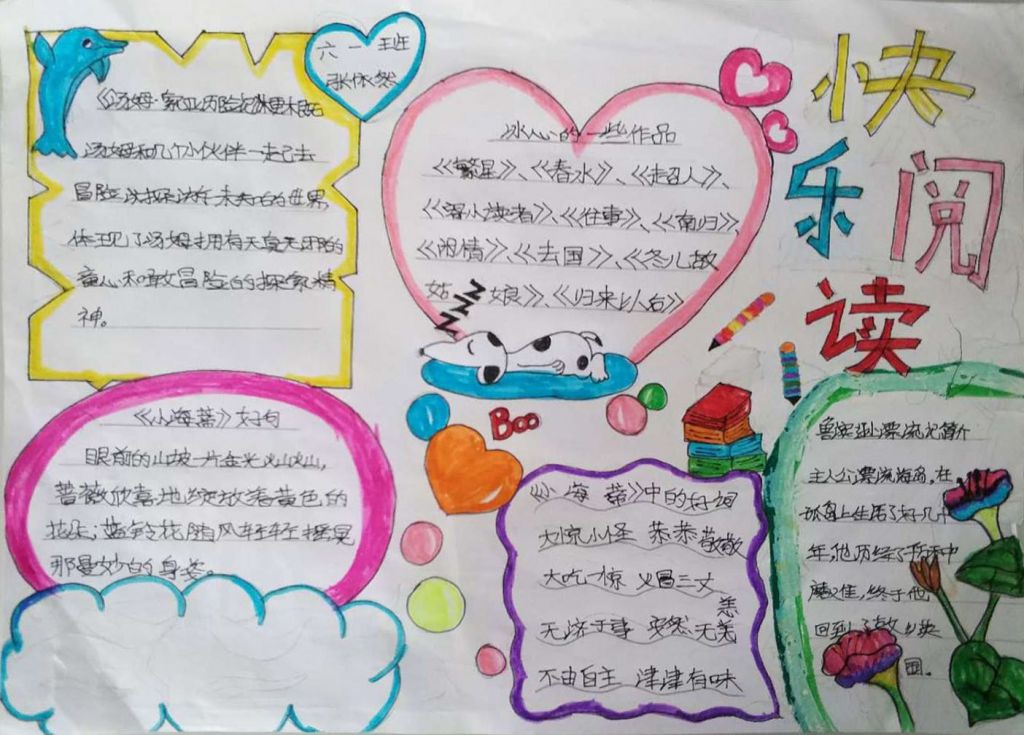 快乐阅读
六一班
张依然
《汤姆·索亚历险记》梗概
汤姆和几个小伙伴一走己去
冒险决探决在未知的世界,
体现了汤姆拥有天真无邪的
童心和敢冒险的探索精
神。
冰心的一些作品
《繁星》、《春水》、《超人》、
《寄小读者》、《往事》、《南归》、
《闲情》、《去国》、《冬儿故
姑娘》、《归来以后》
ZZZ
Boo
《小海蒂》好句
眼前的山坡一片金光灿灿,
蔷薇欣喜地绽放着黄色的
花朵;蓝铃花随风轻轻摇晃
那曼妙的身姿。
《小海蒂》中的好词
大惊小怪 恭恭敬敬
大吃一惊 火冒三丈
无济于事 安然无羙恙
不由自主 津津有味
鲁宾逊漂流记简介
主人公漂流海岛,在
孤岛上生活了好几十
年,他历经了千
磨难,终于他
回到了故乡英
国。